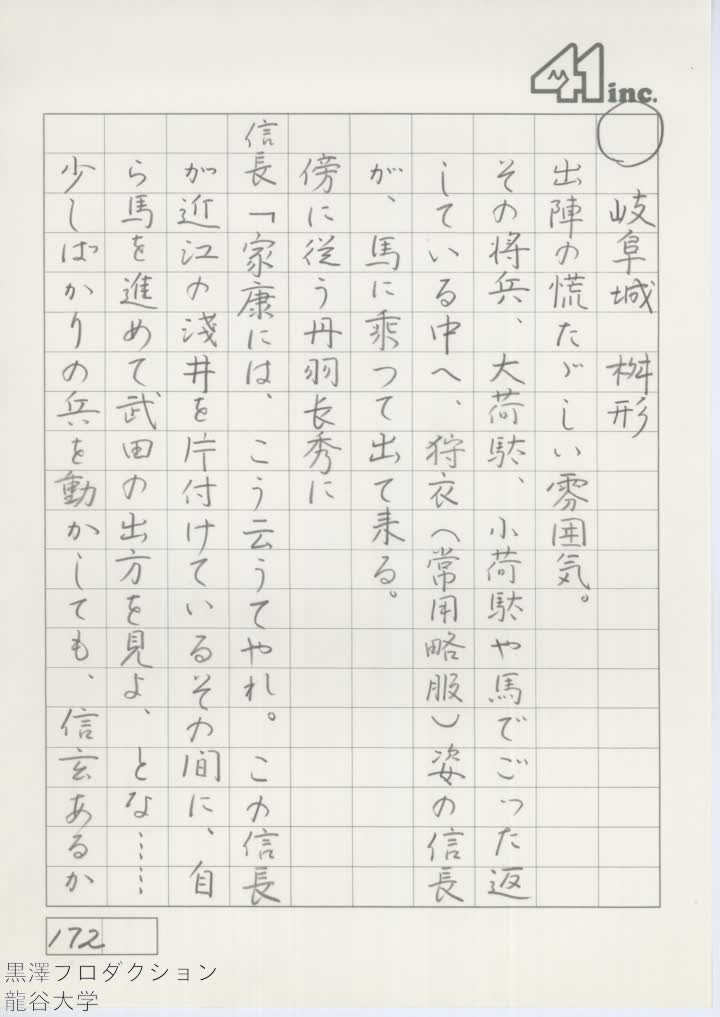 41 inc.
○ 岐阜城 桝形
出陣の慌たゞしい雰囲気。
その将兵、大荷駄、小荷駄や馬でごった返
している中へ、狩衣(常用略服)姿の信長
が、馬に乗って出て来る。
傍に従う丹羽長秀に
信長「家康には、こう云うてやれ。この信長
が近江の浅井を片付けているその間に、自
ら馬を進めて武田の出方を見よ、とな……
少しばかりの兵を動かしても、信玄あるか
172
黒澤プロダクション
龍谷大学